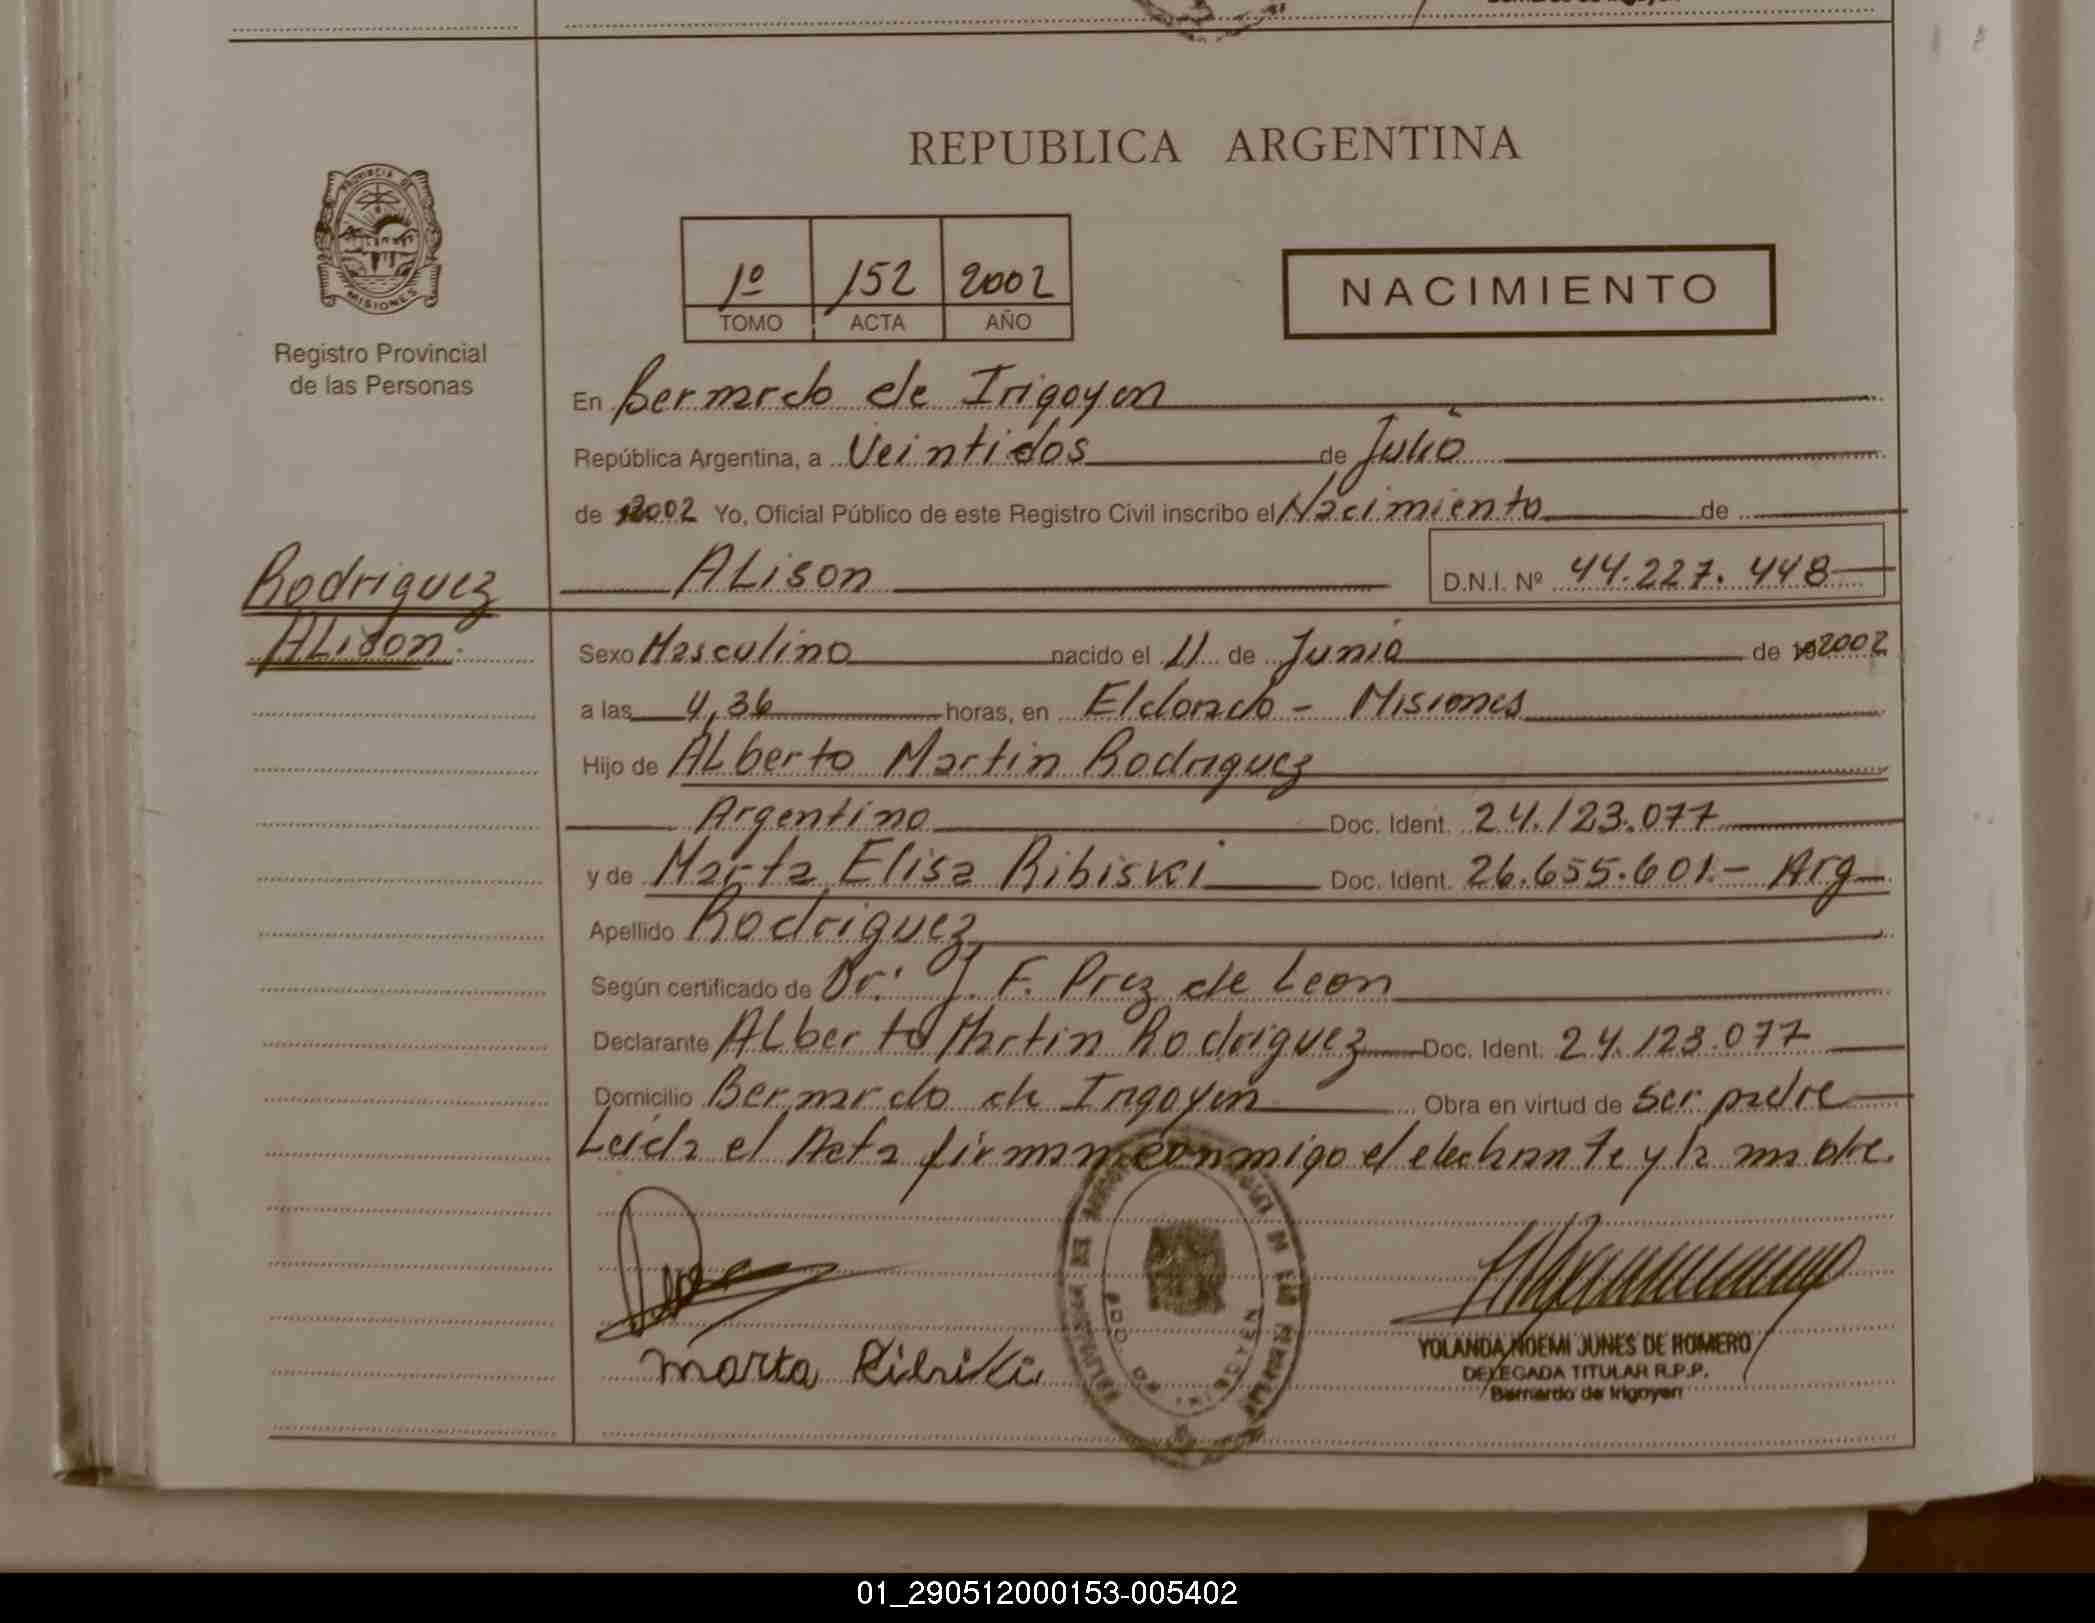 REPUBLICA ARGENTINA
PROVINCIA DE
MISIONES
Registro Provincial
de las Personas
1º 152 2002
TOMO ACTA AÑO
NACIMIENTO
En Bernardo de Irigoyen
República Argentina, a Veintidos de Julio
de 2002 Yo, Oficial Público de este Registro Civil inscribo el Nacimiento de
Rodriguez
ALison.
ALison D.N.I. Nº 44.227.448
Sexo Masculino nacido el 11 de Junio de 2002
a las 4,36 horas, en Eldorado - Misiones
Hijo de ALberto Martin Rodriguez
Argentino Doc. Ident. 24.123.077
y de Marta Elisa Ribiski Doc. Ident. 26.655.601.- Arg
Apellido Rodriguez
Según certificado de Dr. J. F. Prez de Leon
Declarante ALberto Martin Rodriguez Doc. Ident. 24.123.077
Domicilio Bernardo de Irigoyen Obra en virtud de ser padre
Leida el Acta firman conmigo el declarante y la madre.
Marta Ribiski
YOLANDA NOEMI JUNES DE ROMERO
DELEGADA TITULAR R.P.P.
Bernardo de Irigoyen
01_290512000153-005402